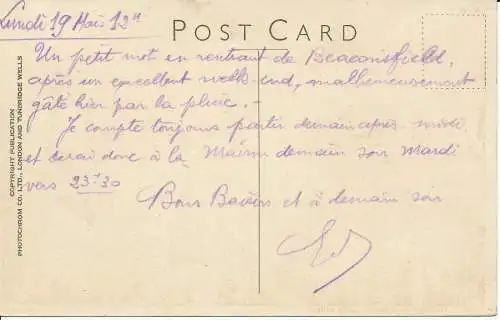 Lundi 19 Mai 12H
POST CARD
Un petit mot en rentrant de Beaconsfield,
après un excellent week-end, malheureusement
gâté hier par la pluie. -
Je compte toujours partir demain après-midi
et serai donc à la Maison demain soir Mardi
vers 23H30
Bons Baisers et à demain soir
COPYRIGHT PUBLICATION
PHOTOCHROM CO. LTD., LONDON AND TUNBRIDGE WELLS